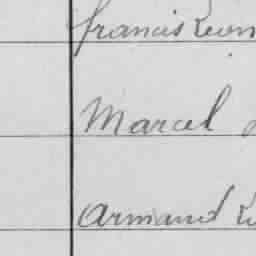 francis Leon
Marcel
Armand